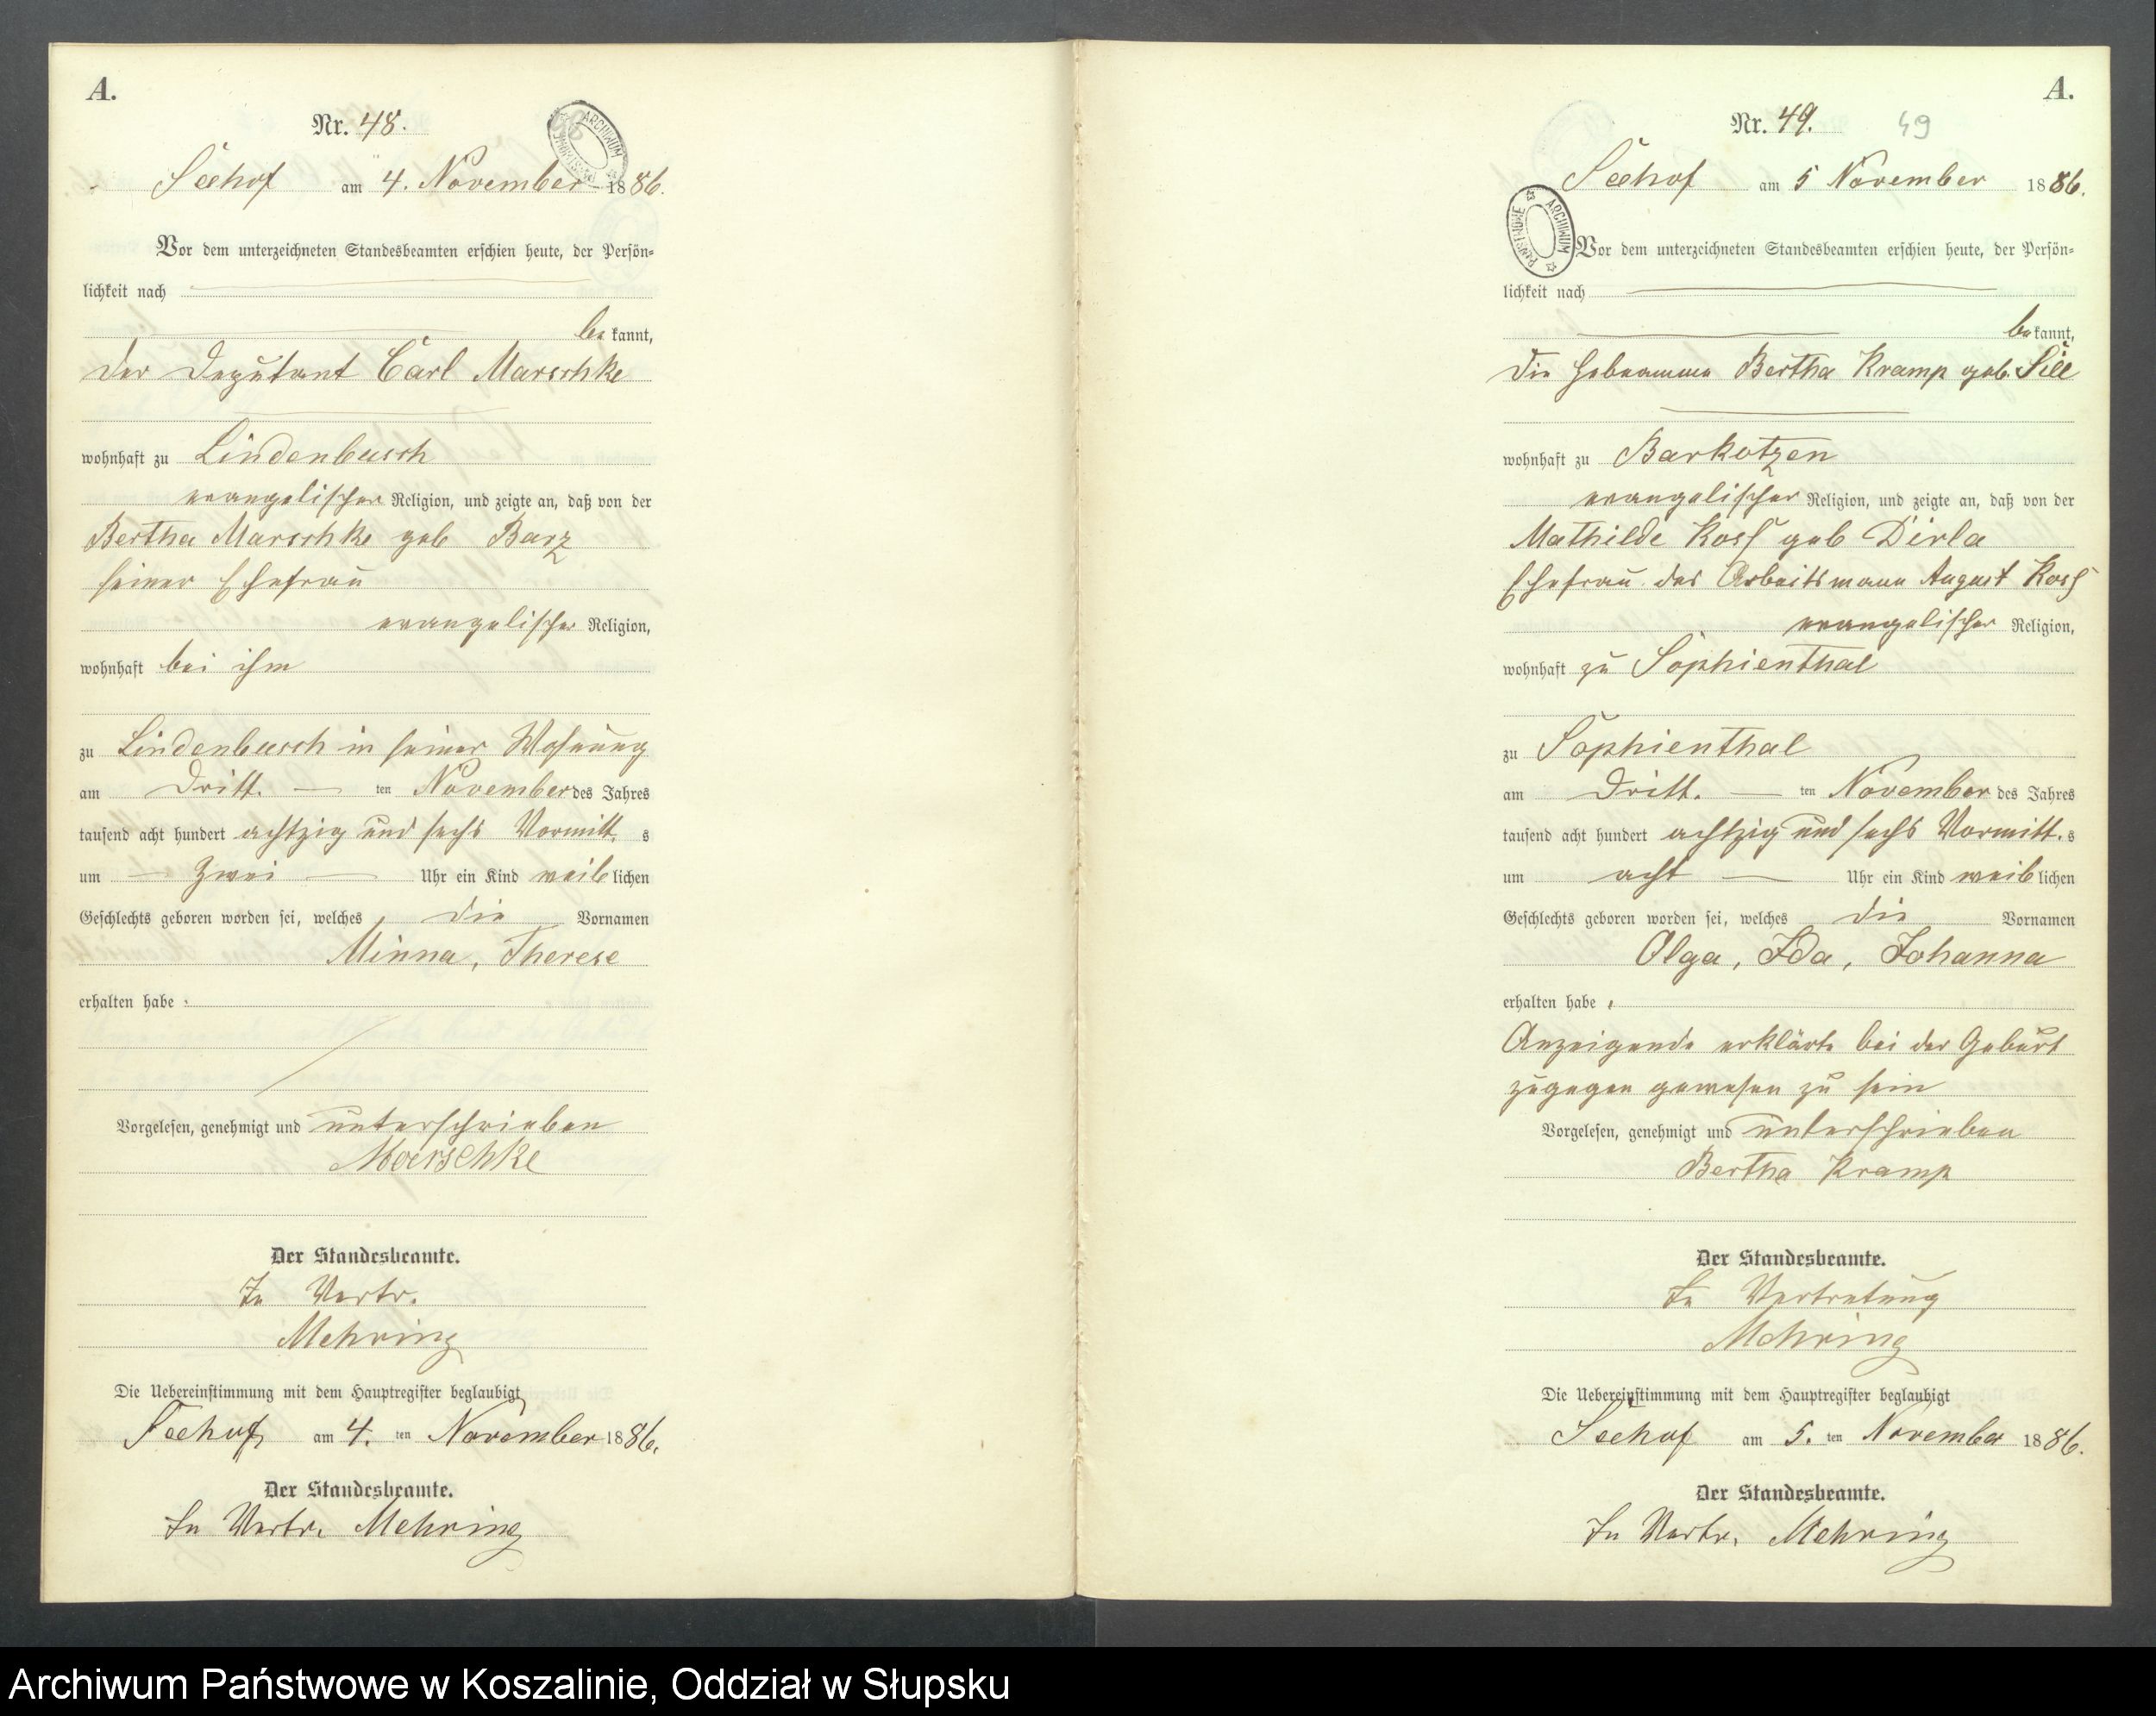 A.
Nr. 48.
ARCHIWUM PAŃSTWOWE
Seehof am 4. November 1886.
Vor dem unterzeichneten Standesbeamten erschien heute, der Persön-
lichkeit nach
be kannt,
der Deputant Carl Marschke
wohnhaft zu Lindenbusch
evangelischer Religion, und zeigte an, daß von der
Bertha Marschke geb Barz
seiner Ehefrau
evangelischer Religion,
wohnhaft bei ihm
zu Lindenbusch in seiner Wohnung
am dritt. ten November des Jahres
tausend acht hundert achtzig und sechs Vormitt. s
um zwei Uhr ein Kind weiblichen
Geschlechts geboren worden sei, welches die Vornamen
Minna, Therese
erhalten habe.
Vorgelesen, genehmigt und unterschrieben
Marschke
Der Standesbeamte.
In Vertr.
Mehring
Die Uebereinstimmung mit dem Hauptregister beglaubigt
Seehof, am 4. ten November 1886.
Der Standesbeamte.
In Vertr. Mehring
A.
Nr. 49. 49
Seehof am 5 November 1886.
ARCHIWUM PAŃSTWOWE
Vor dem unterzeichneten Standesbeamten erschien heute, der Persön-
lichkeit nach
be kannt,
die Hebeamme Bertha Kramp geb. Sill
wohnhaft zu Barkotzen
evangelischer Religion, und zeigte an, daß von der
Mathilde Koss geb Dirla
Ehefrau des Arbeitsmann August Koss
evangelischer Religion,
wohnhaft zu Sophienthal
zu Sophienthal
am dritt. ten November des Jahres
tausend acht hundert achtzig und sechs Vormitt. s
um acht Uhr ein Kind weiblichen
Geschlechts geboren worden sei, welches die Vornamen
Olga, Ida, Johanna
erhalten habe,
Anzeigende erklärte bei der Geburt
zugegen gewesen zu sein
Vorgelesen, genehmigt und unterschrieben
Bertha Kramp
Der Standesbeamte.
In Vertretung
Mehring
Die Uebereinstimmung mit dem Hauptregister beglaubigt
Seehof am 5. ten November 1886.
Der Standesbeamte.
In Vertr. Mehring
Archiwum Państwowe w Koszalinie, Oddział w Słupsku